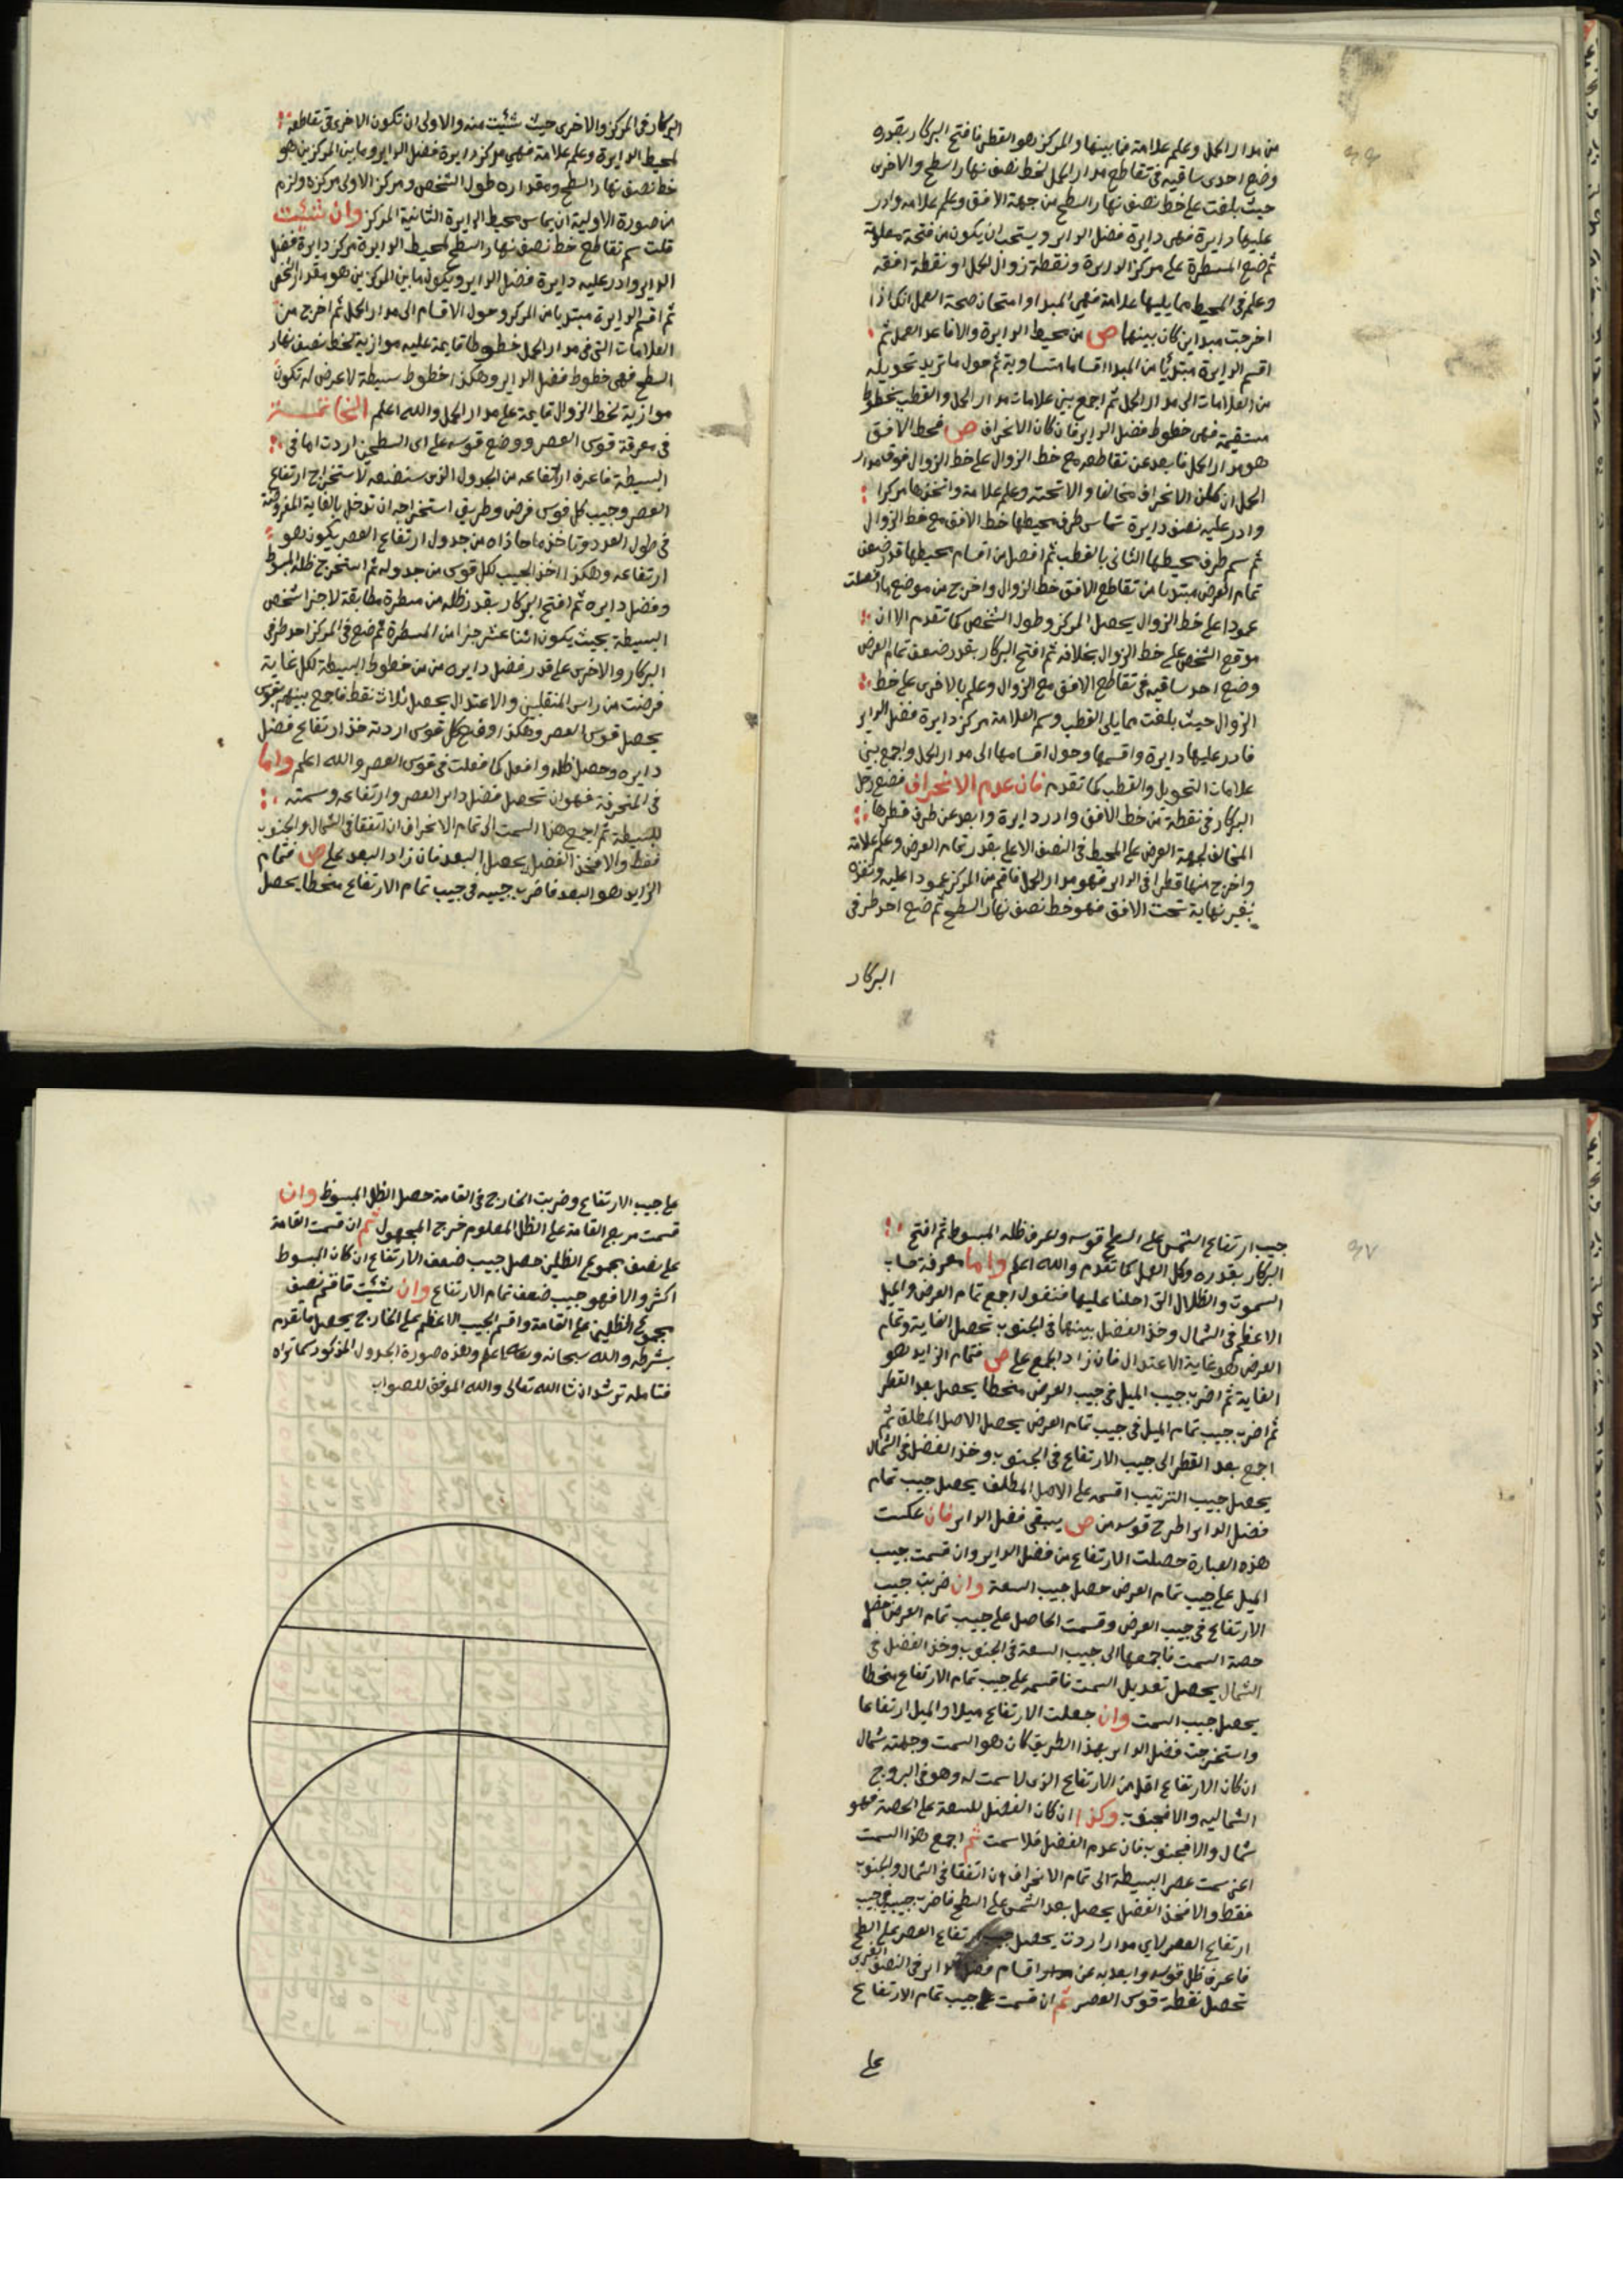 من مدار الحمل وعلم علامة فما بينها والمركز هو القطر فافتح البركار بقدره
وضع احدى ساقيه في تقاطع مدار الحمل لخط نصف نهار السطح والاخرى
حيث بلغت على خط نصف نهار السطح من جهة الافق وعلم علامة وادر
عليها دايرة فهى دايرة فضل الداير ويستحب ان يكون من فتحة معلومة
ثم ضع المسطرة على مركز الدايرة ونقطة زوال الحمل او نقطة افقه
وعلم في المحيط مما يليها علامة فهى المبدا وامتحان صحة العمل انك اذا
اخرجت مبداين كان بينهما ص من محيط الدايرة والا فاعد العمل ثم
اقسم الدايرة مبتديًا من المبدا اقساما متساوية ثم حول ما تريد تحويله
من العلامات الى مدار الحمل ثم اجمع بين علامات مدار الحمل والقطب بخطوط
مستقيمة فهى خطوط فضل الداير فان كان الانحراف ص فخط الافق
هو مدار الحمل فابعد عن تقاطعه مع خط الزوال على خط الزوال فوق مدار
الحمل ان كان الانحراف مخالفا والا تحته وعلم علامة واتخذها مركزا
وادر عليه نصف دايرة تماس طرف محيطها خط الافق مع خط الزوال
ثم سم طرف محيطها الثانى بالقطب ثم افصل من اقسام محيطها قدر ضعف
تمام العرض مبتديا من تقاطع الافق خط الزوال واخرج من موضع ما فصلت
عمودا على خط الزوال يحصل المركز وطول الشخص كما تقدم الا ان
موقع الشخص على خط الزوال بخلافه ثم افتح البركار بقدر ضعف تمام العرض
وضع احد ساقيه في تقاطع الافق مع الزوال وعلم بالاخرى على خط
الزوال حيث بلغت مما يلى القطب وسم العلامة مركز دايرة فضل الداير
فادر عليها دايرة واقسمها وحول اقسامها الى مدار الحمل واجمع بين
علامات التحويل والقطب كما تقدم فان عدم الانحراف فضع رجل
البركار في نقطة من خط الافق وادر دايرة وابعد عن طرف قطرها
المخالف لجهة العرض على المحيط في النصف الاعلى بقدر تمام العرض وعلم علامة
واخرج منها قطرا في الداير فهو مدار الحمل فاقم من المركز عمودا عليه وتنفذه
بغير نهاية تحت الافق فهو خط نصف نهار السطح ثم ضع احد طرفى
البركار
البركار في المركز والاخرى حيث شئيت منه والاولى ان تكون الاخرى في تقاطعه
لمحيط الدايرة وعلم علامة فهى مركز دايرة فضل الداير وما بين المركزين هو
خط نصف نهار السطح ومقداره طول الشخص ومركز الاولى مركزه ولزم
من صورة الاولية ان يماس محيط الدايرة الثانية المركز وان شئيت
قلت سم تقاطع خط نصف نهار السطح لمحيط الدايرة مركز دايرة فضل
الداير وادر عليه دايرة فضل الداير ويكون ما بين المركزين هو مقدار الشخص
ثم اقسم الدايرة مبتديا من المركز وحول الاقسام الى مدار الحمل ثم اخرج من
العلامات التى في مدار الحمل خطوطا قايمة عليه موازية لخط نصف نهار
السطح فهى خطوط فضل الداير وهكذا خطوط بسيطة لا عرض له تكون
موازية لخط الزوال قايمة على مدار الحمل والله اعلم الخاتمة
في معرفة قوس العصر ووضع قوسه على اى السطحين اردت اما في
البسيطة فاعرف ارتفاعه من الجدول الذى سنضعه لاستخراج ارتفاع
العصر وجيب كل قوس فرض وطريق استخراجه ان تدخل بالغاية المفروضة
في طول العدد وتاخذ ما حاذاه من جدول ارتفاع العصر يكون هو
ارتفاعه وهكذا اخذ الجيب لكل قوس من جدوله ثم استخرج ظله المبسوط
وفضل دايره ثم افتح البركار بقدر ظله من مسطرة مطابقة لاجزا شخص
البسيطة بحيث يكون اثنا عشر جزا من المسطرة ثم ضع في المركز احد طرفى
البركار والاخرى على قدر فضل دايره من خطوط البسيطة لكل غاية
فرضت من راس المنقلبين والاعتدال يحصل ثلاث نقط فاجمع بينهم بقوس
يحصل قوس العصر وهكذا وضع كل قوس اردته خذ ارتفاع فضل
دايره وحصل ظله وافعل كما فعلت في قوس العصر والله اعلم واما
في المنحرفة فهو ان تحصل فضل داير العصر وارتفاعه وسمته
للبسيطة ثم اجمع هذا السمت الى تمام الانحراف ان اتفقا في الشمال والجنوب
فقط والا فخذ الفضل يحصل البعد فان زاد البعد على ص فتمام
الزايد هو البعد فاضرب جيبه في جيب تمام الارتفاع منحطا يحصل
٩٧
جيب ارتفاع الشمس على السطح قوسه وتعرف ظله المبسوط ثم افتح
البركار بقدره وكل العمل كما تقدم والله اعلم واما معرفة حساب
السموت والظلال التى احلنا عليها فنقول اجمع تمام العرض والميل
الاعظم في الشمال وخذ الفضل بينهما في الجنوب تحصل الغاية وتمام
العرض هو غاية الاعتدال فان زاد الجمع على ص فتمام الزايد هو
الغاية ثم اضرب جيب الميل في جيب العرض منحطا يحصل بعد القطر
ثم اضرب جيب تمام الميل في جيب تمام العرض يحصل الاصل المطلق ثم
اجمع بعد القطر الى جيب الارتفاع في الجنوب وخذ الفضل في الشمال
يحصل جيب الترتيب اقسمه على الاصل المطلق يحصل جيب تمام
فضل الداير اطرح قوسه من ص يبقى فضل الداير فان عكست
هذه العبارة حصلت الارتفاع من فضل الداير وان قسمت جيب
الميل على جيب تمام العرض حصل جيب السعة وان ضربت جيب
الارتفاع في جيب العرض وقسمت الحاصل على جيب تمام العرض حصل
حصة السمت فاجمعها الى جيب السعة في الجنوب وخذ الفضل في
الشمال يحصل تعديل السمت فاقسمه على جيب تمام الارتفاع منحطا
يحصل جيب السمت وان جعلت الارتفاع ميلا والميل ارتفاعا
واستخرجت فضل الداير بهذا الطريق كان هو السمت وجهته شمال
ان كان الارتفاع اقل من الارتفاع الذى لا سمت له وهو في البروج
الشماليه والا فجنوب وكذا ان كان الفضل للسعة على الحصة فهو
شمال والا فجنوب فان عدم الفضل فلا سمت ثم اجمع هذا السمت
اعنى سمت عصر البسيطة الى تمام الانحراف ان اتفقا في الشمال والجنوب
فقط والا فخذ الفضل يحصل بعد الشمس على السطح فاضرب جيبه في جيب
ارتفاع العصر لاى مدار اردت يحصل جيب ارتفاع العصر على السطح
فاعرف ظل قوسه وابعد به عن اقسام فضل الداير في النصف الغربى
تحصل نقطة قوس العصر ثم ان قسمت جيب تمام الارتفاع
على
على جيب الارتفاع وضربت الخارج في القامة حصل الظل المبسوط وان
قسمت مربع القامة على الظل المعلوم خرج المجهول ثم ان قسمت القامة
على نصف مجموع الظلين حصل جيب ضعف الارتفاع ان كان المبسوط
اكثر والا فهو جيب ضعف تمام الارتفاع وان شئيت فاقسم نصف
مجموع الظلين على القامة واقسم الجيب الاعظم على الخارج يحصل ما تقدم
بشرطه والله سبحانه وتعالى اعلم وهذه صورة الجدول المذكور كما تراه
فتامله ترشد ان شا الله تعالى والله الموفق للصواب